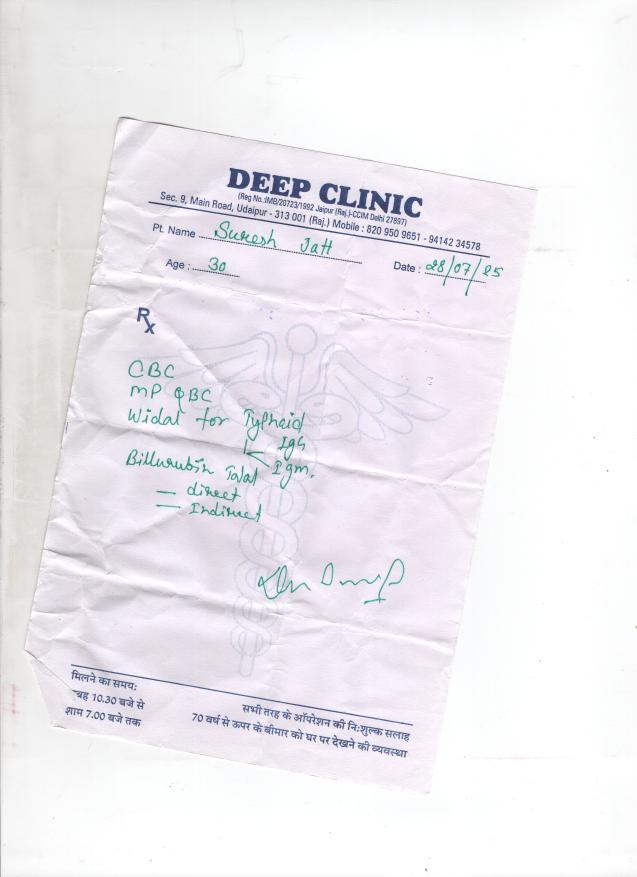 DEEP CLINIC
(Reg No.:IMB/20723/1992 Jaipur (Raj.)-CCIM Delhi 27897)
Sec. 9, Main Road, Udaipur - 313 001 (Raj.) Mobile : 820 950 9651 - 94142 34578
Pt. Name Suresh Jatt
Age : 30 Date : 28/07/25
Rx
CBC
MP QBC
Widal for Typhaid
IgG
Igm.
Billurubin Total
— direct
— Indirect
मिलने का समय:
बह 10.30 बजे से
शाम 7.00 बजे तक
सभी तरह के ऑपरेशन की नि:शुल्क सलाह
70 वर्ष से ऊपर के बीमार को घर पर देखने की व्यवस्था